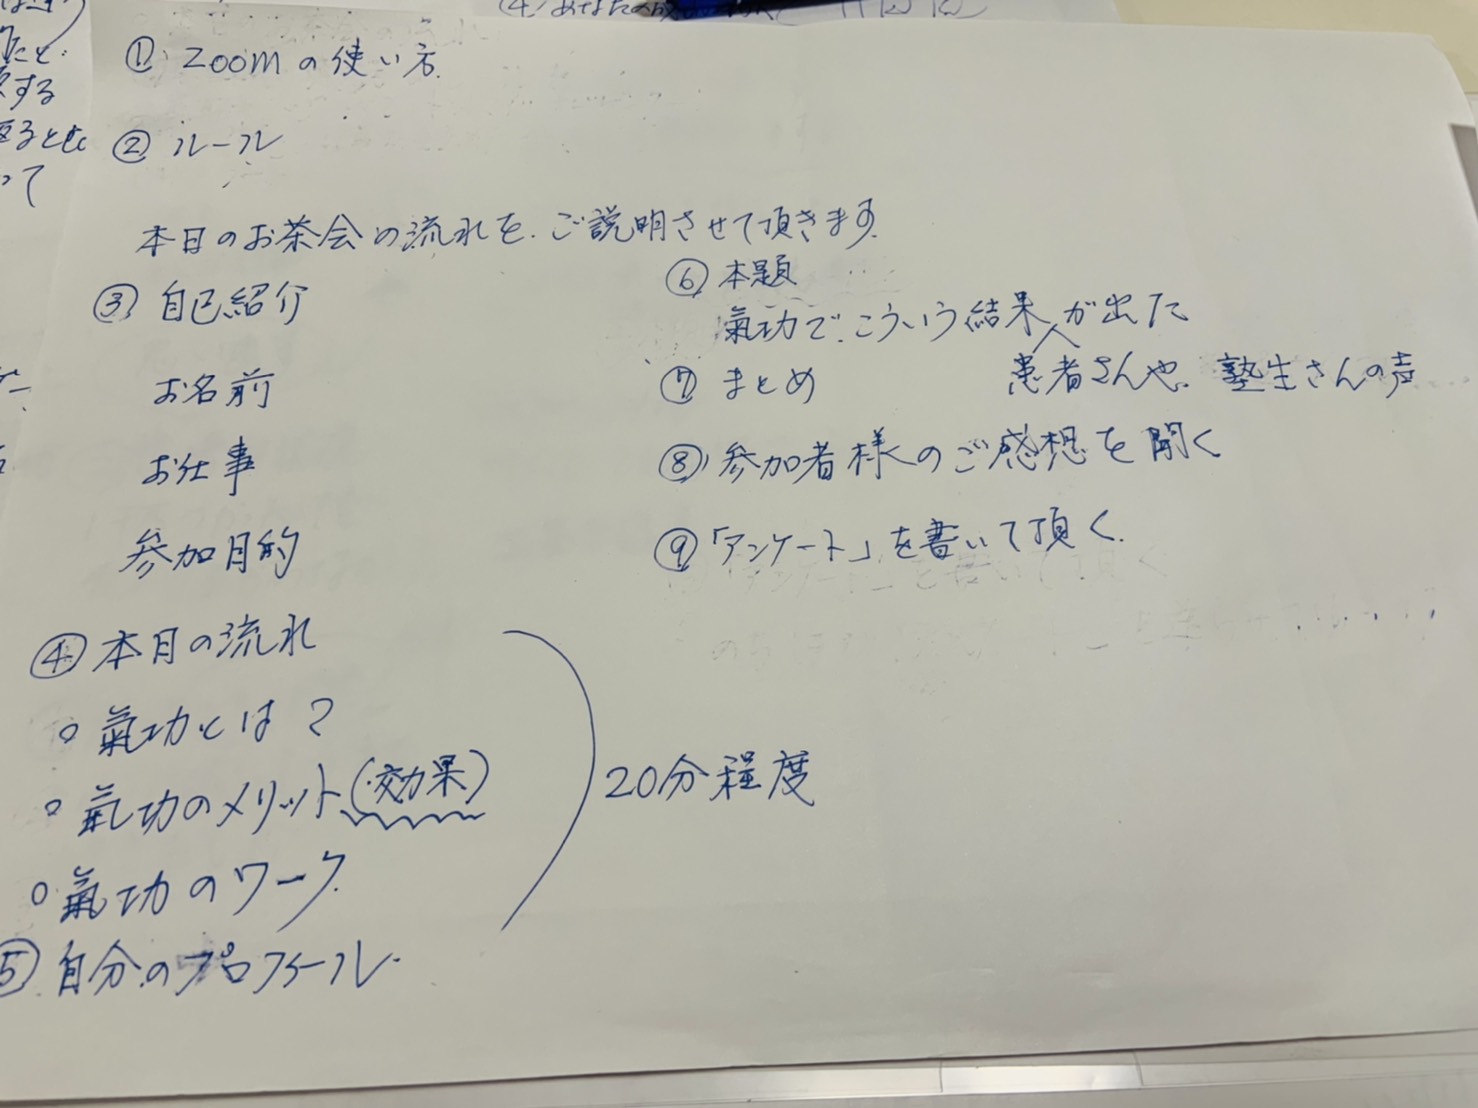 ① Zoomの使い方
② ルール
本日のお茶会の流れを、ご説明させて頂きます
③ 自己紹介
お名前
お仕事
参加目的
④ 本日の流れ
○ 氣功とは?
○ 氣功のメリット(効果)
○ 氣功のワーク
20分程度
⑤ 自分のプロフィール
⑥ 本題
氣功で、こういう結果が出た
患者さんや、塾生さんの声
⑦ まとめ
⑧ 参加者様のご感想を聞く
⑨ 「アンケート」を書いて頂く
する
って